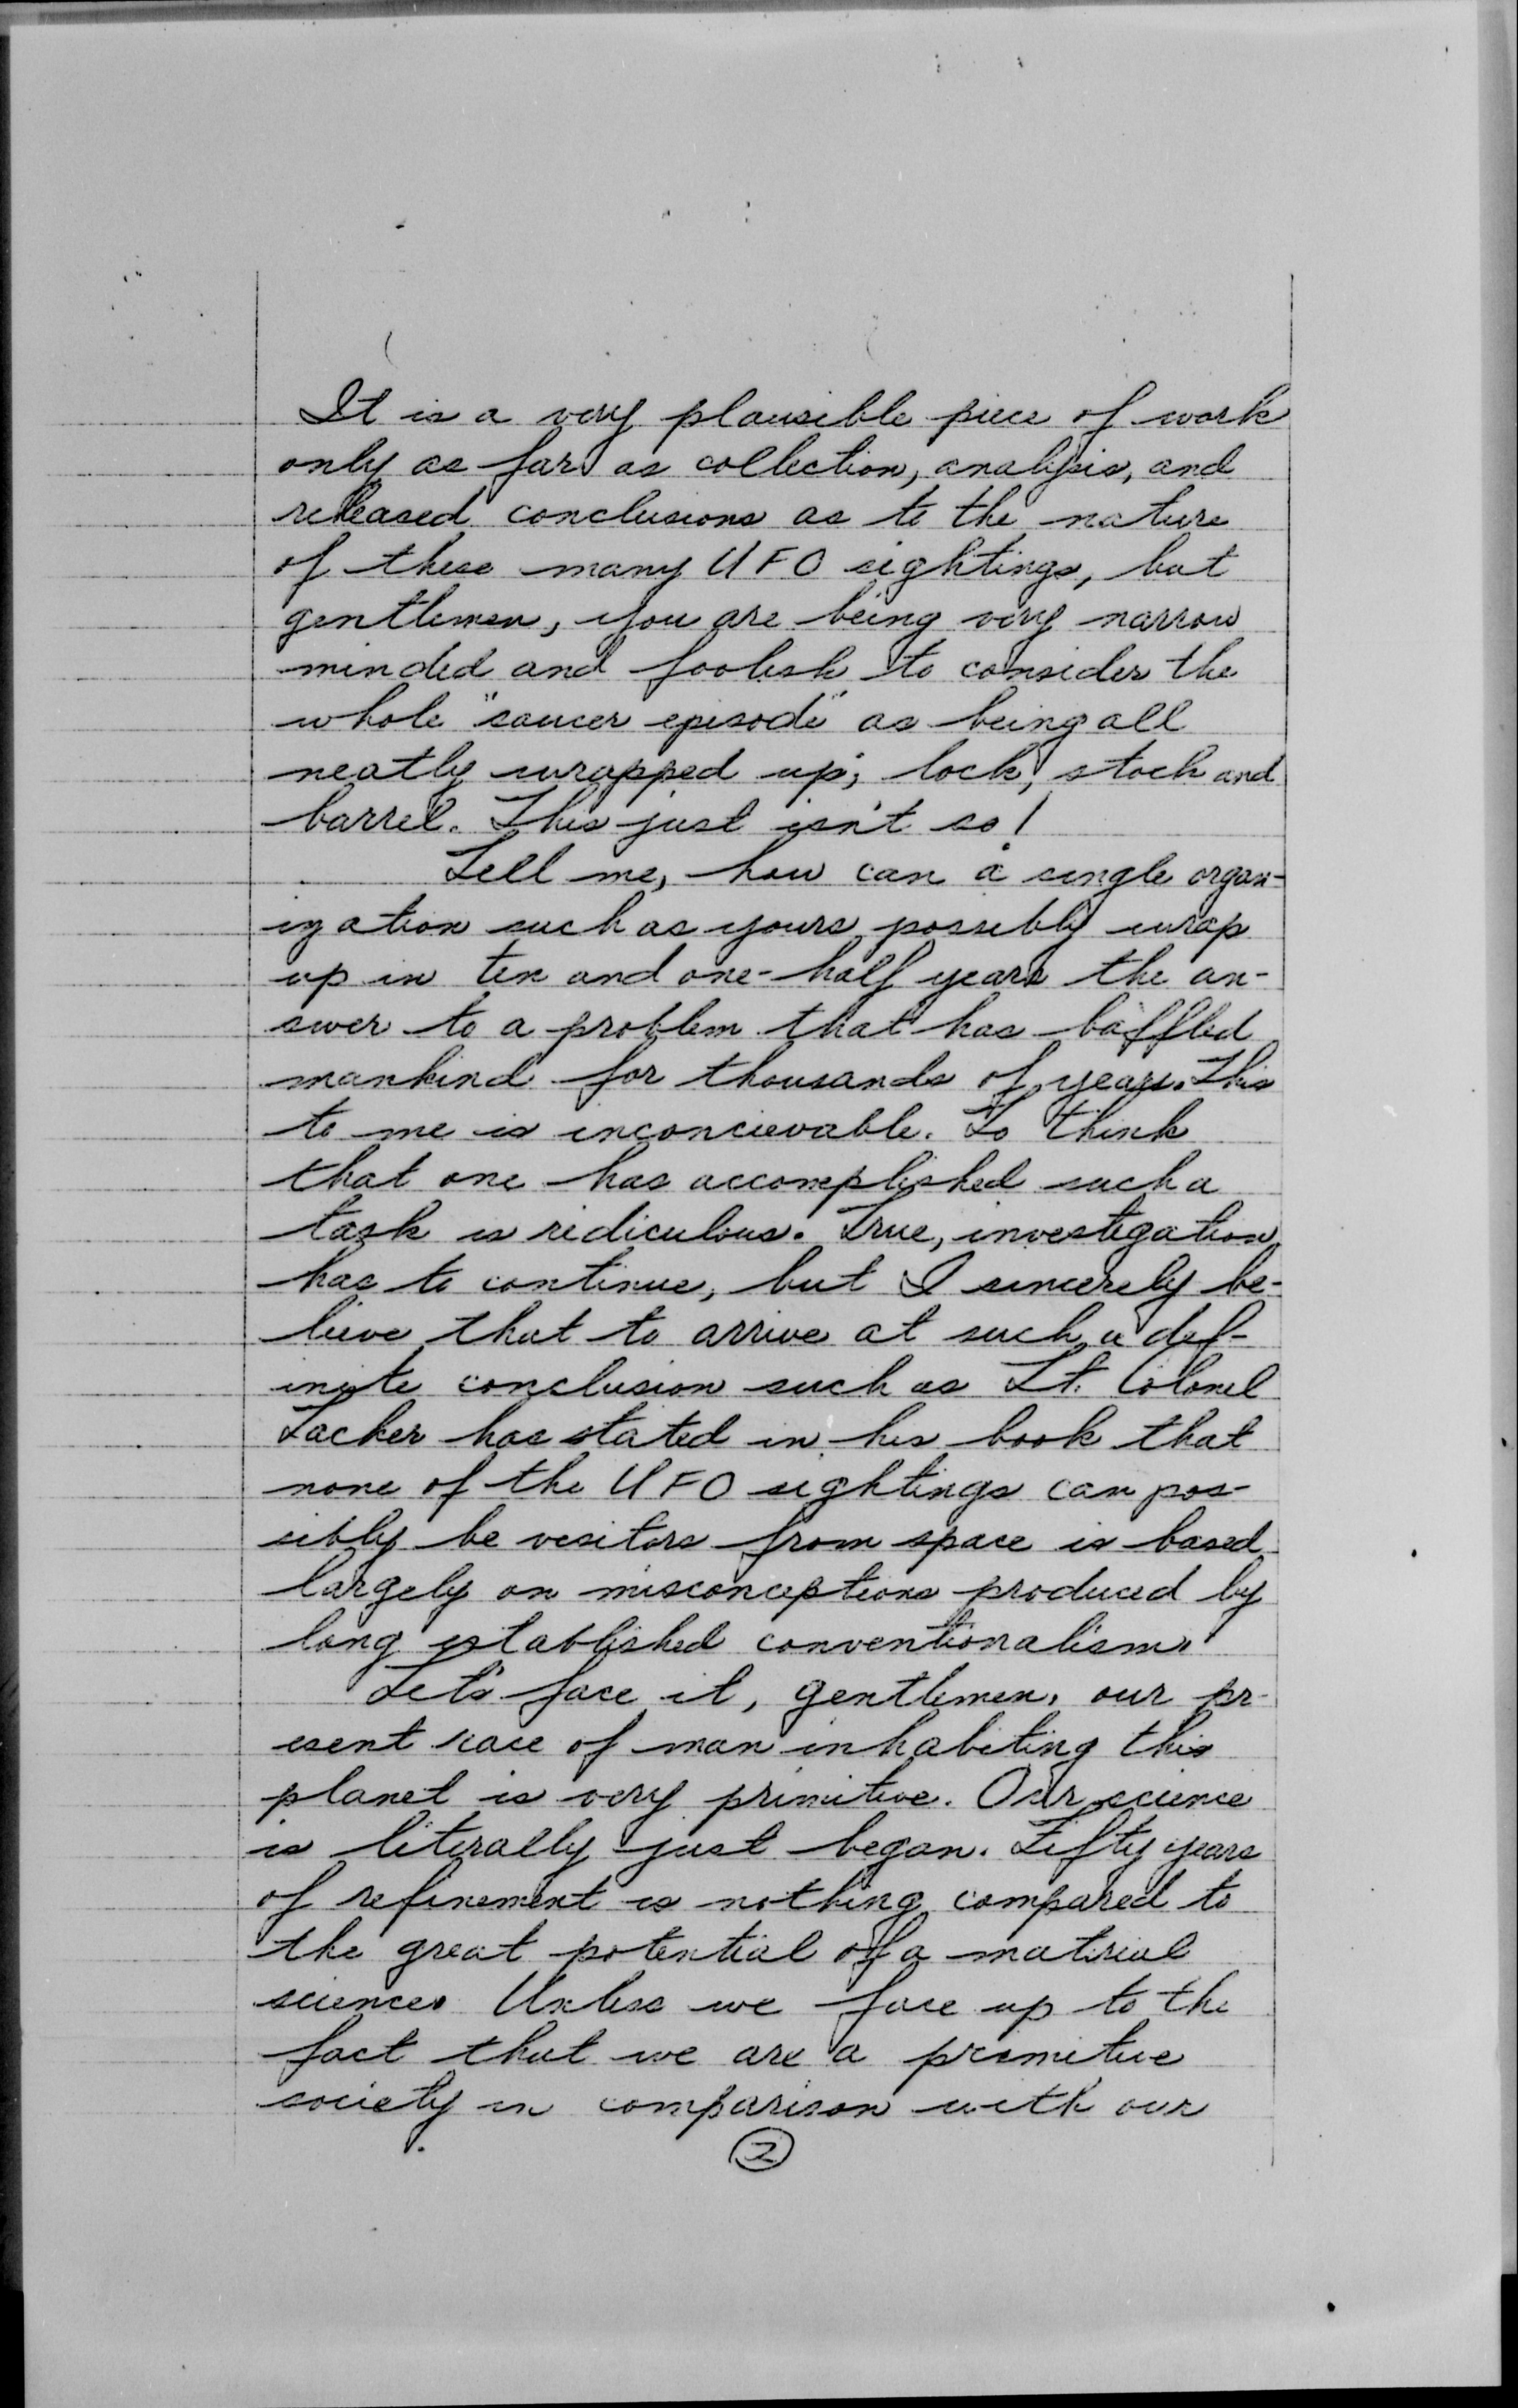 It is a very plausible piece of work
only as far as collection, analysis, and
released conclusions as to the nature
of these many UFO sightings, but
gentlemen, you are being very narrow
minded and foolish to consider the
whole "saucer episode" as being all
neatly wrapped up; lock, stock and
barrel. This just isn't so!
Tell me, how can a single organ-
ization such as yours possibly wrap
up in ten and one-half years the an-
swer to a problem that has baffled
mankind for thousands of years. This
to me is inconcievable. To think
that one has accomplished such a
task is ridiculous. True, investigation
has to continue, but I sincerely be-
lieve that to arrive at such a def-
inite conclusion such as Lt. Colonel
Tacker has stated in his book that
none of the UFO sightings can pos-
sibly be visitors from space is based
largely on misconceptions produced by
long established conventionalism.
Let's face it, gentlemen, our pr-
esent race of man inhabiting this
planet is very primitive. Our science
is literally just began. Fifty years
of refinement is nothing compared to
the great potential of a material
science. Unless we face up to the
fact that we are a primitive
society in comparison with our
2